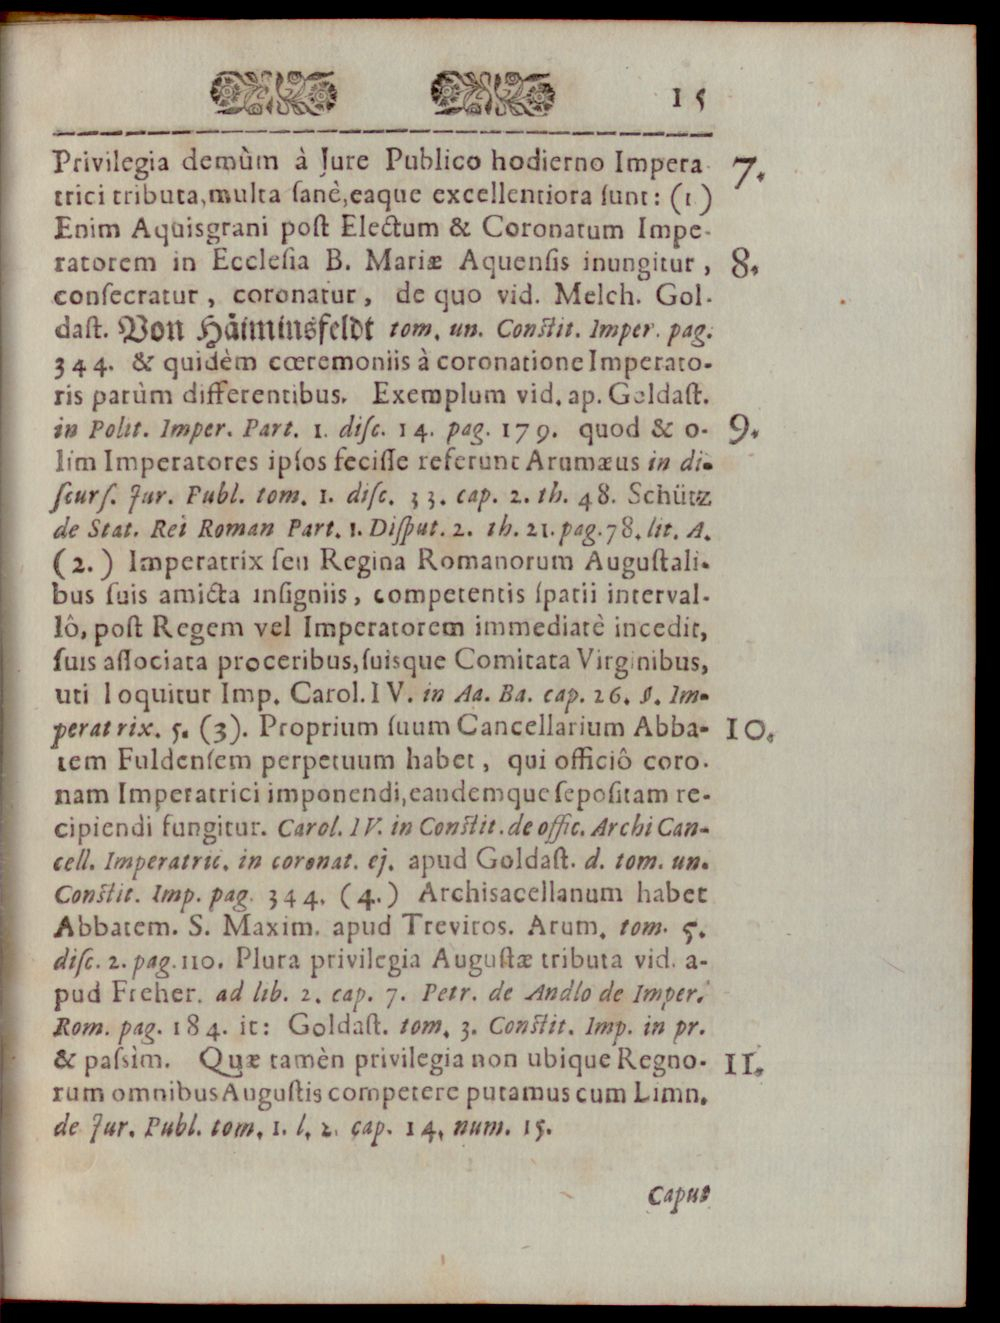 15
Privilegia demùm à Jure Publico hodierno Impera- 7.
trici tributa, multa ſanè, eaque excellentiora ſunt: (1)
Enim Aquisgrani poſt Electum & Coronatum Impe-
ratorem in Eccleſia B. Mariæ Aquenſis inungitur, 8.
conſecratur, coronatur, de quo vid. Melch. Gol-
daſt. Von Häiminsfeldt tom. un. Conſtit. Imper. pag.
344. & quidèm cœremoniis à coronatione Imperato-
ris parùm differentibus. Exemplum vid. ap. Goldaſt.
in Polit. Imper. Part. 1. diſc. 14. pag. 179. quod & o- 9.
lim Imperatores ipſos feciſſe referunt Arumæus in di-
ſcurſ. Jur. Publ. tom. 1. diſc. 33. cap. 2. th. 48. Schütz
de Stat. Rei Roman Part. 1. Diſput. 2. th. 21. pag. 78. lit. A.
(2.) Imperatrix ſeu Regina Romanorum Auguſtali-
bus ſuis amicta inſigniis, competentis ſpatii interval-
lô, poſt Regem vel Imperatorem immediatè incedit,
ſuis aſſociata proceribus, ſuisque Comitata Virginibus,
uti loquitur Imp. Carol. IV. in Aa. Ba. cap. 26. §. Im-
peratrix. 5. (3). Proprium ſuum Cancellarium Abba- 10.
tem Fuldenſem perpetuum habet, qui officiô coro-
nam Imperatrici imponendi, eandemque ſepoſitam re-
cipiendi fungitur. Carol. IV. in Conſtit. de offic. Archi Can-
cell. Imperatric. in coronat. ej. apud Goldaſt. d. tom. un.
Conſtit. Imp. pag. 344. (4.) Archisacellanum habet
Abbatem. S. Maxim. apud Treviros. Arum. tom. 5.
diſc. 2. pag. 110. Plura privilegia Auguſtæ tributa vid. a-
pud Freher. ad lib. 2. cap. 7. Petr. de Andlo de Imper.
Rom. pag. 184. it: Goldaſt. tom. 3. Conſtit. Imp. in pr.
& paſsìm. Quæ tamèn privilegia non ubique Regno- 11.
rum omnibus Auguſtis competere putamus cum Limn.
de Jur. Publ. tom. 1. l. 2. cap. 14. num. 15.
Caput